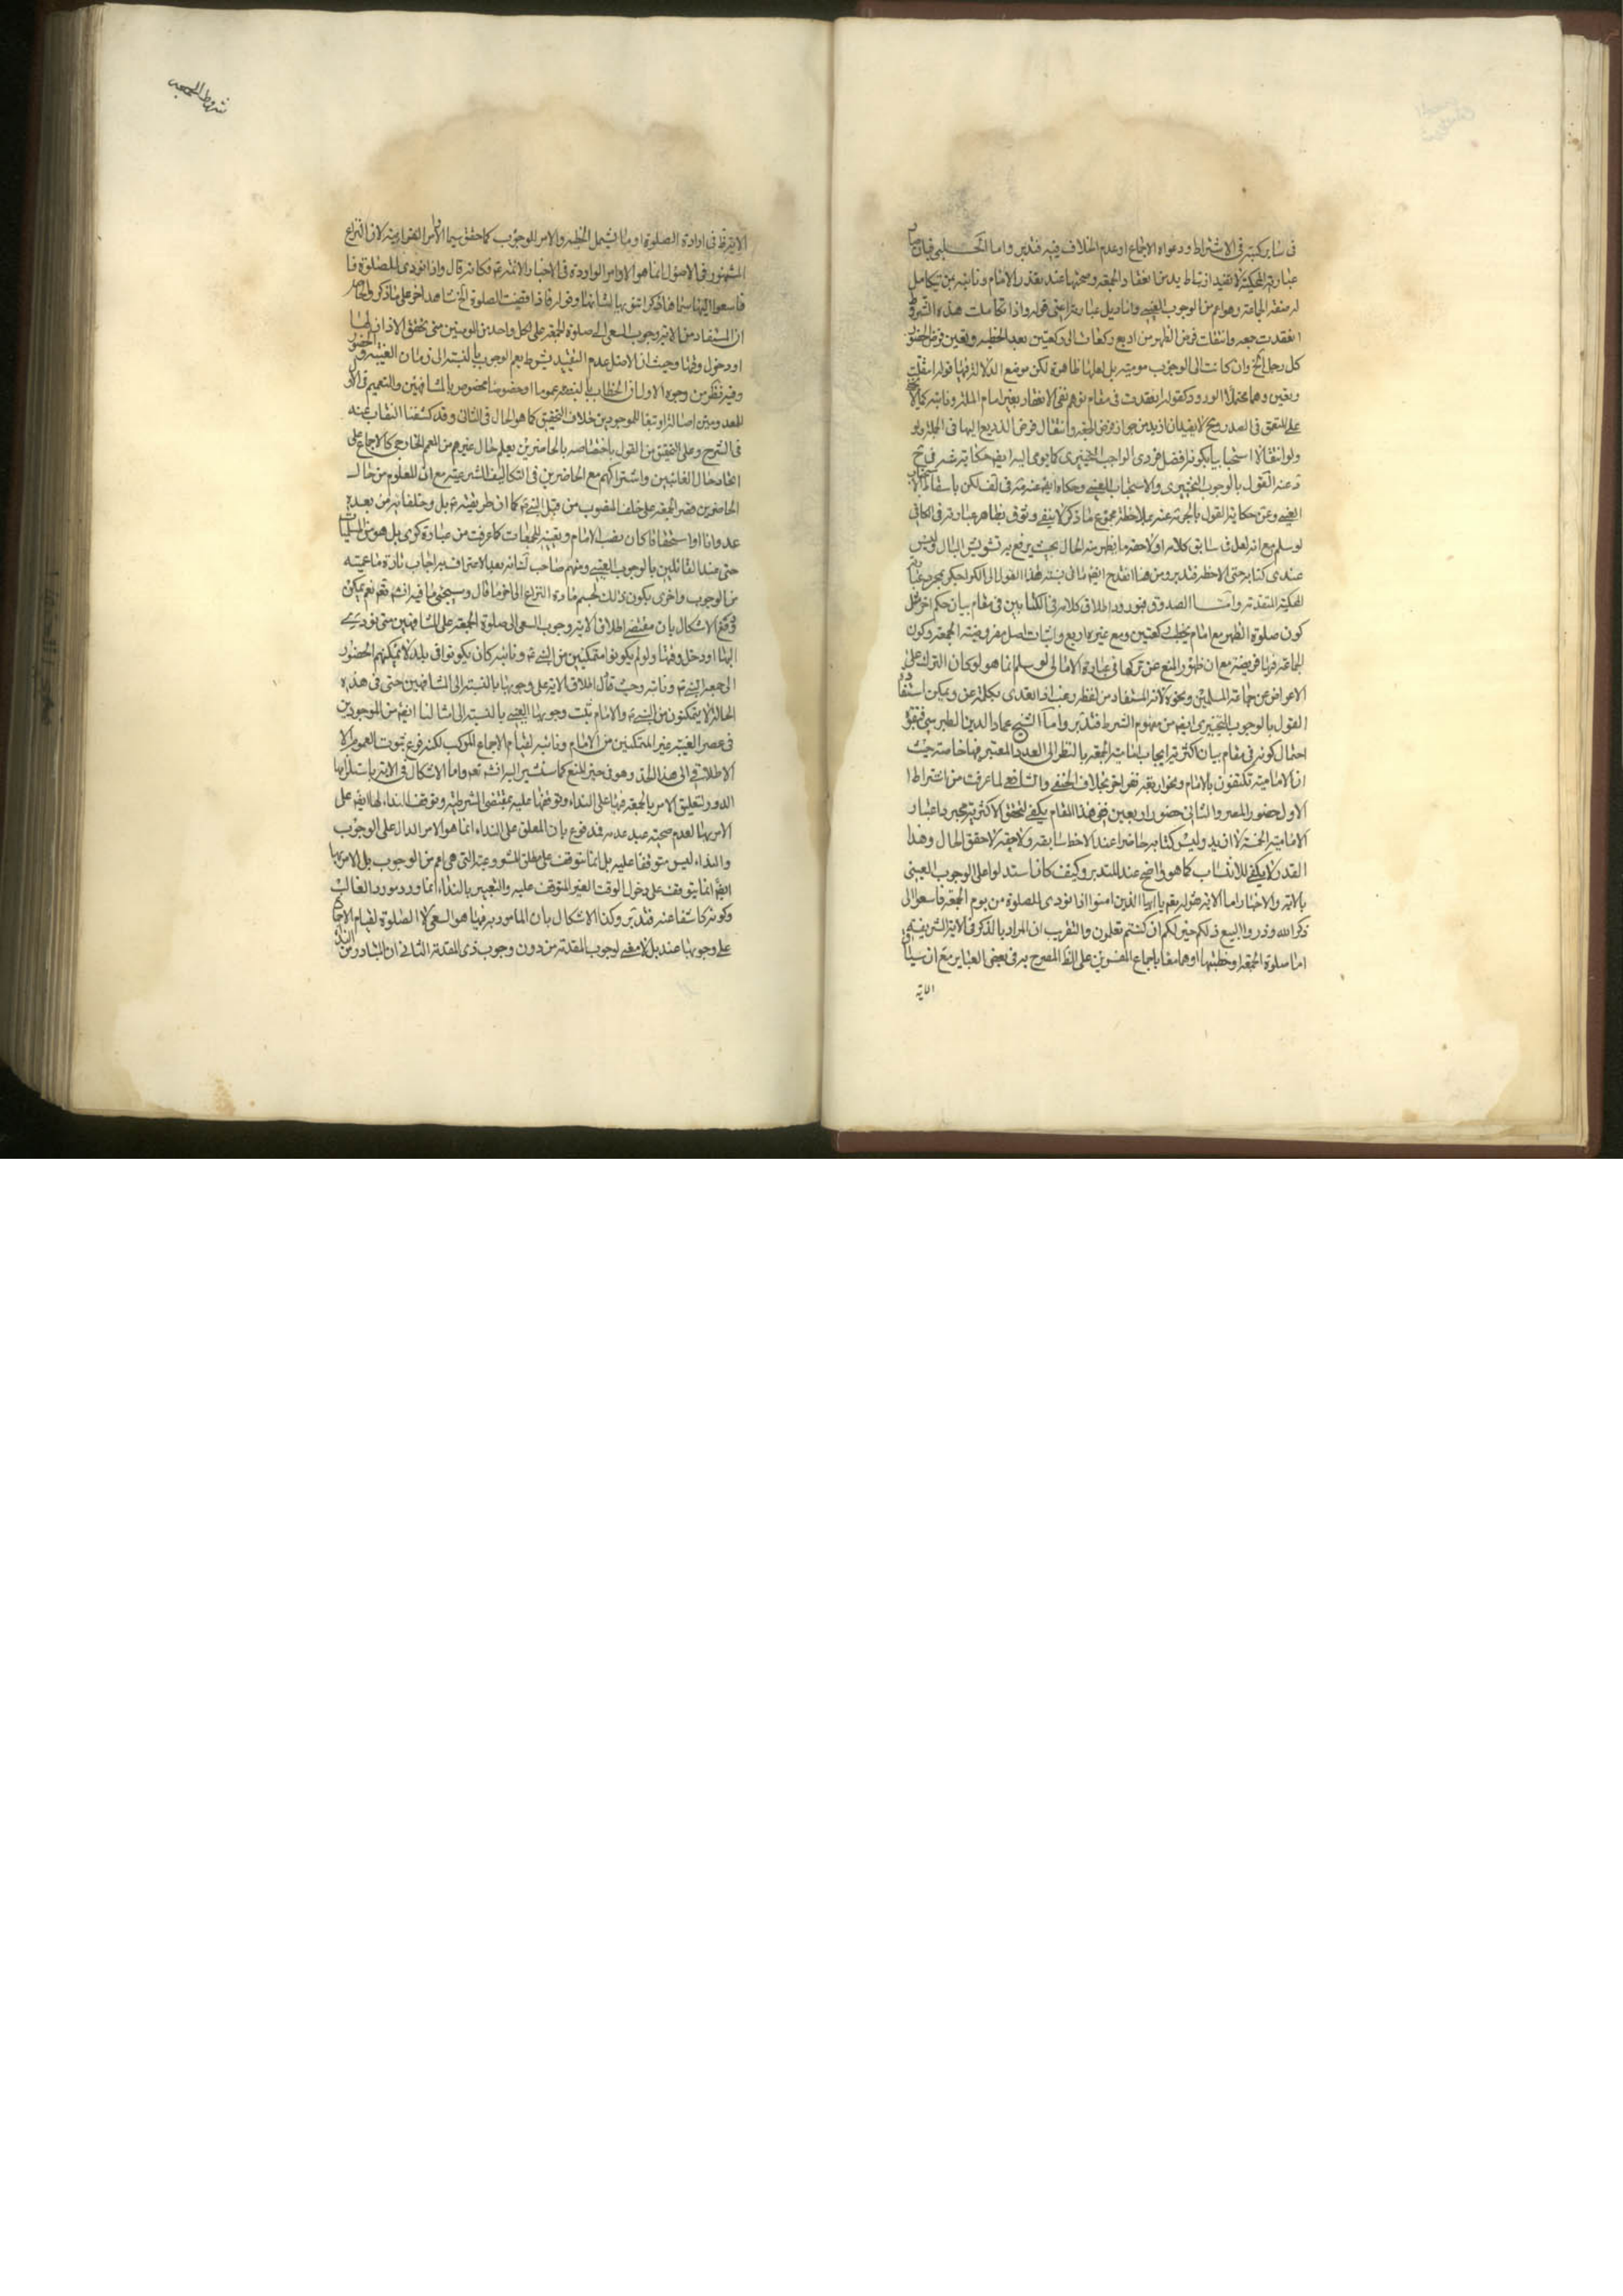 في سائر كتبه في الاشتراط ودعواه الاجماع او عدم الخلاف فيه فتدبر واما الحلبي فبان
عبارته المحكية لا تفيد ازيد من انعقاد الجمعه وصحتها عند تعذر الامام ونائبه بمن تتكامل
له صفة امام الجماعة وهو اعم من الوجوب العيني واما ذيل عبارته اعني قوله واذا تكاملت هذه الشروط
انعقدت جمعه وانتقلت فرض الظهر من اربع ركعات الى ركعتين بعد الخطبه وتعين فرض الحضور
كل رجل الخ وان كانت الى الوجوب مومية بل لعلها ظاهرة لكن موضع الدلالة فيها قوله انتقلت
وتعين وهما محتملا الورود كقوله انعقدت في مقام توهم نفي الانعقاد بغير امام الملة ونائبه
على المتعمق في الصدر وح لا يفيدان ازيد من جواز فرض الجمعه وانتقال فرض الاربع اليها في الجمله ولو
ولو انتقالا استحبابيا بكونه افضل فردي الواجب التخييري كما يومي اليه ايضا حكايته في
عنه القول بالوجوب التخييري والاستحباب العيني وحكاه ايضا عنه في لف لكن باسقاط
العيني وعن حكاية القول بالحرمة عنه بملاحظة مجموع ما ذكر لا يبقى وثوق بظاهر عبارته في الكافي
لو سلم مع انه لعل في سابق كلامه او لاحقه ما يظهر منه الحال بحيث يرفع به تشويش البال وليس
عندي كتابه حتى الاحظه فتدبر ومن هنا انقدح ايضا ما في نسبة هذا القول الى الكراجكي بمجرد
المحكية المتقدمة واما الصدوق فبورود اطلاق كلامه في الكتابين في مقام بيان حكم اخر مثل
كون صلوة الظهر مع امام يخطب ركعتين ومع غيره اربع واثبات اصل مفروضية الجمعة وكون
الجماعة فيها فريضة مع ان ظهور المنع عن تركها في عبارة الامالي لو سلم انما هو لو كان الترك على
الاعراض عن جماعة المسلمين ونحوه لانه المستفاد من لفظ رغب اذا تعدى بكلمة عن ويمكن استفادة
القول بالوجوب التخييري ايضا من مفهوم الشرط فتدبر واما الشيخ عماد الدين الطبرسي فبقوة
احتمال كونه في مقام بيان اكثرية ايجاب الامامية الجمعه بالنظر الى العدد المعتبر فيها خاصة حيث
ان الامامية تكتفون بالامام ونحو اربعة نفر اخر بخلاف الحنفي والشافعي لما عرفت من اشتراط
الاول حضور المصر والثاني حضور اربعين ففي هذا المقام يكفي لتحقق الاكثرية مجرد اعتبار
الامامية الخمسة لا ازيد وليس كتابه حاضرا عندنا لاحظ سابقه ولاحقه لاحقق الحال وهذا
القدر لا يكفي للانتساب كما هو واضح عند المتدبر وكيف كان فاستدلوا على الوجوب العيني
بالاية والاخبار اما الاية فقوله تعالى يا ايها الذين امنوا اذا نودي للصلوة من يوم الجمعة فاسعوا الى
ذكر الله وذروا البيع ذلكم خير لكم ان كنتم تعلمون والتقريب ان المراد بالذكر في الاية الشريفة
اما صلوة الجمعه او خطبتها او هما معا باجماع المفسرين على الظ المصرح به في بعض العباير مع ان سياق
الاية
شروط الجمعه
الاية ظ في ارادة الصلوة او ما يشمل الخطبه والامر للوجوب كما حقق سيما الاوامر القرانية لان النزاع
المشهور في الاصول انما هو الاوامر الواردة في الاخبار الائمة ع فكانه قال واذا نودي للصلوة
فاسعوا اليها سيما هذا ذكر اتفق بها لشانها وقوله فاذا قضيت الصلوة الخ شاهد اخر على ما ذكر والحاصل
ان المستفاد من الاية وجوب السعي الى صلوة الجمعه على كل واحد من المومنين متى تحقق الاذان لها
او دخول وقتها وحيث ان الاصل عدم التقييد بشرط يعم الوجوب بالنسبة الى زمان الغيبة والحضور
وفيه نظر من وجوه الاول ان الخطاب بالنصه عموما او خصوصا مخصوص بالمشافهين والتعميم في
المعدومين اصالة او تبعا للموجودين خلاف التحقيق كما هو الحال في الثاني وقد كشفنا النقاب عنه
في الشرح وعلى التحقيق من القول باختصاصه بالحاضرين يعلم حال غيرهم من المعمم الخارج كالاجماع على
اتحاد حال الغائبين واشتراكهم مع الحاضرين في التكاليف الشرعيه مع ان المعلوم من حال
الحاضرين قصر الجمعه على خلف المنصوب من قبل النبي ص كما ان طريقته ص بل وخلفائه من بعده
عدوانا او استحقاقا كان نصب الامام وتعيينه للجمعات كما عرفت من عبارة كرى بل هو من المسلمات
حتى عند القائلين بالوجوب العيني ومنهم صاحب لك فانه بعد الاعتراف به اجاب تارة بما عينه
من الوجوب واخرى بكون ذلك لحسم مادة النزاع الى اخر ما قال وسيجيء ما فيه انشاء الله تعالى نعم يمكن
دفع الاشكال بان مقتضى اطلاق الاية وجوب السعي الى صلوة الجمعه على المشافهين متى نودي
اليها او دخل وقتها ولو لم يكونوا متمكنين من النبي ص ونائبه كان يكونوا في بلد لا يمكنهم الحضور
الى جمعه النبي ص ونائبه وحيث دل اطلاق الاية على وجوبها بالنسبة الى المشافهين حتى في هذه
الحالة لا يتمكنون من النبي ص والامام ثبت وجوبها العيني بالنسبة الى امثالنا ايضا من الموجودين
في عصر الغيبة غير المتمكنين من الامام ونائبه لقيام الاجماع المركب لكنه فرع ثبوت العموم او
الاطلاق في الى هذا الحد وهو في حيز المنع كما سنشير اليه انشاء الله تعالى واما الاشكال في الاية باستلزامها
الدور لتعليق الامر بالجمعه فيها على النداء وتوقفها عليه بمقتضى الشرطية وتوقف النداء لها ايضا على
الامر بها لعدم صحته عند عدمه فمدفوع بان المعلق على النداء انما هو الامر الدال على الوجوب
والنداء ليس متوقفا عليه بل انما يتوقف على مطلق المشروعية التي هي اعم من الوجوب بل الامر بها
ايضا انما يتوقف على دخول الوقت الغير المتوقف عليه والتعبير بالنداء انما ورد مورد الغالب
وكونه كاشفا عنه فتدبر وكذا الاشكال بان المامور به فيها هو السعي لا الصلوة لقيام الاجماع
على وجوبها عنده بل لا معنى لوجوب المقدمة من دون وجوب ذي المقدمة الثاني ان المتبادر من النداء